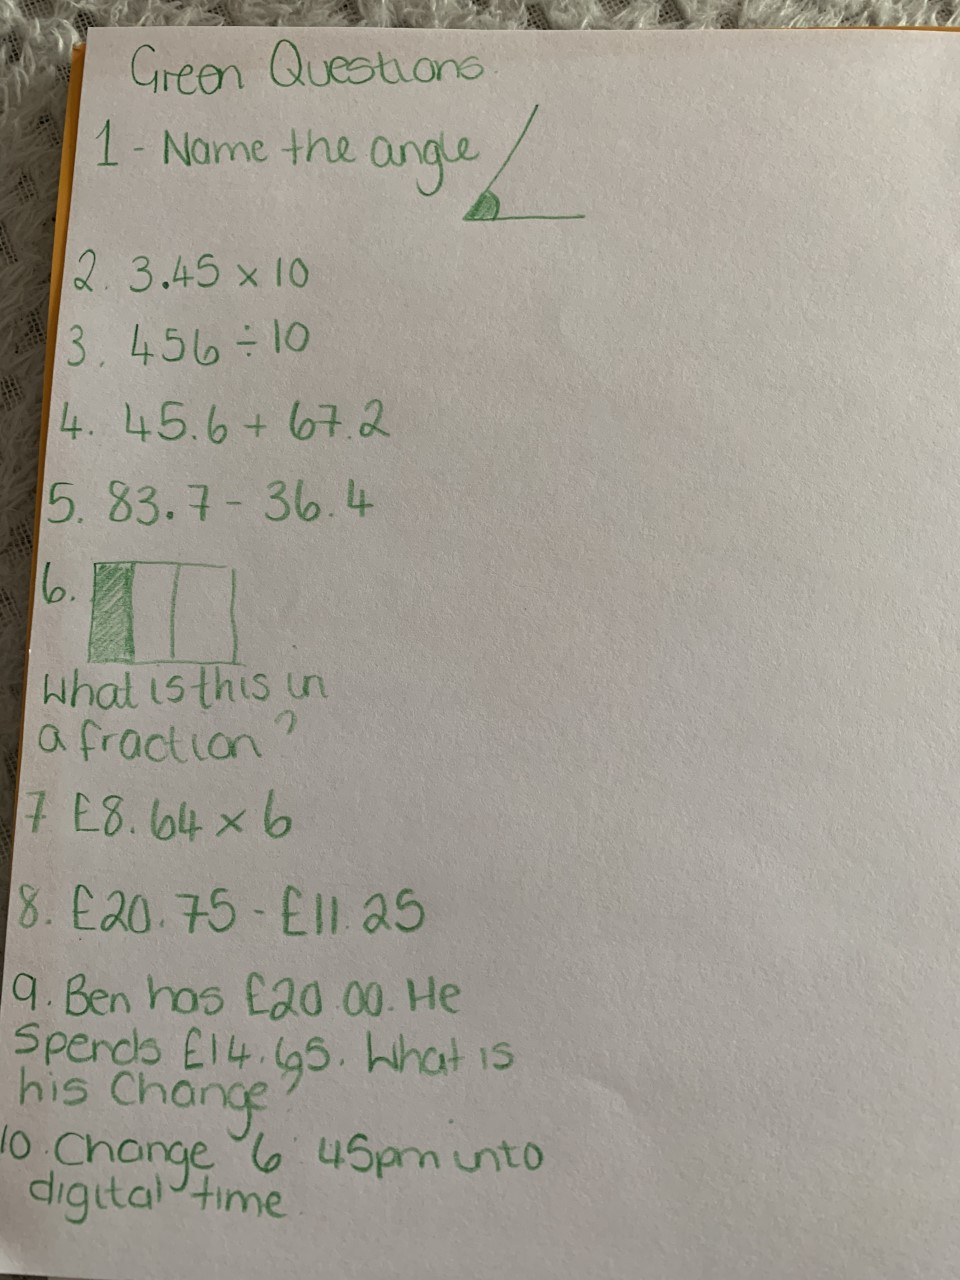 Green Questions.
1 - Name the angle
2. 3.45 x 10
3. 456 ÷ 10
4. 45.6 + 67.2
5. 83.7 - 36.4
6.
What is this in
a fraction?
7 £8.64 x 6
8. £20.75 - £11.25
9. Ben has £20.00. He
spends £14.65. What is
his change?
10. Change 6:45pm into
digital time